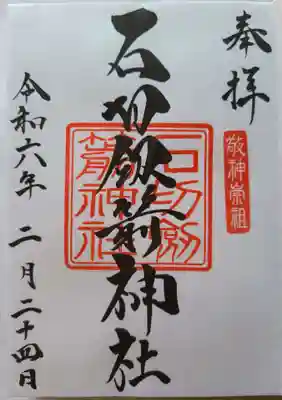 奉拝
敬神崇祖
石切劔箭神社
石切劔箭神社
令和六年 二月二十四日